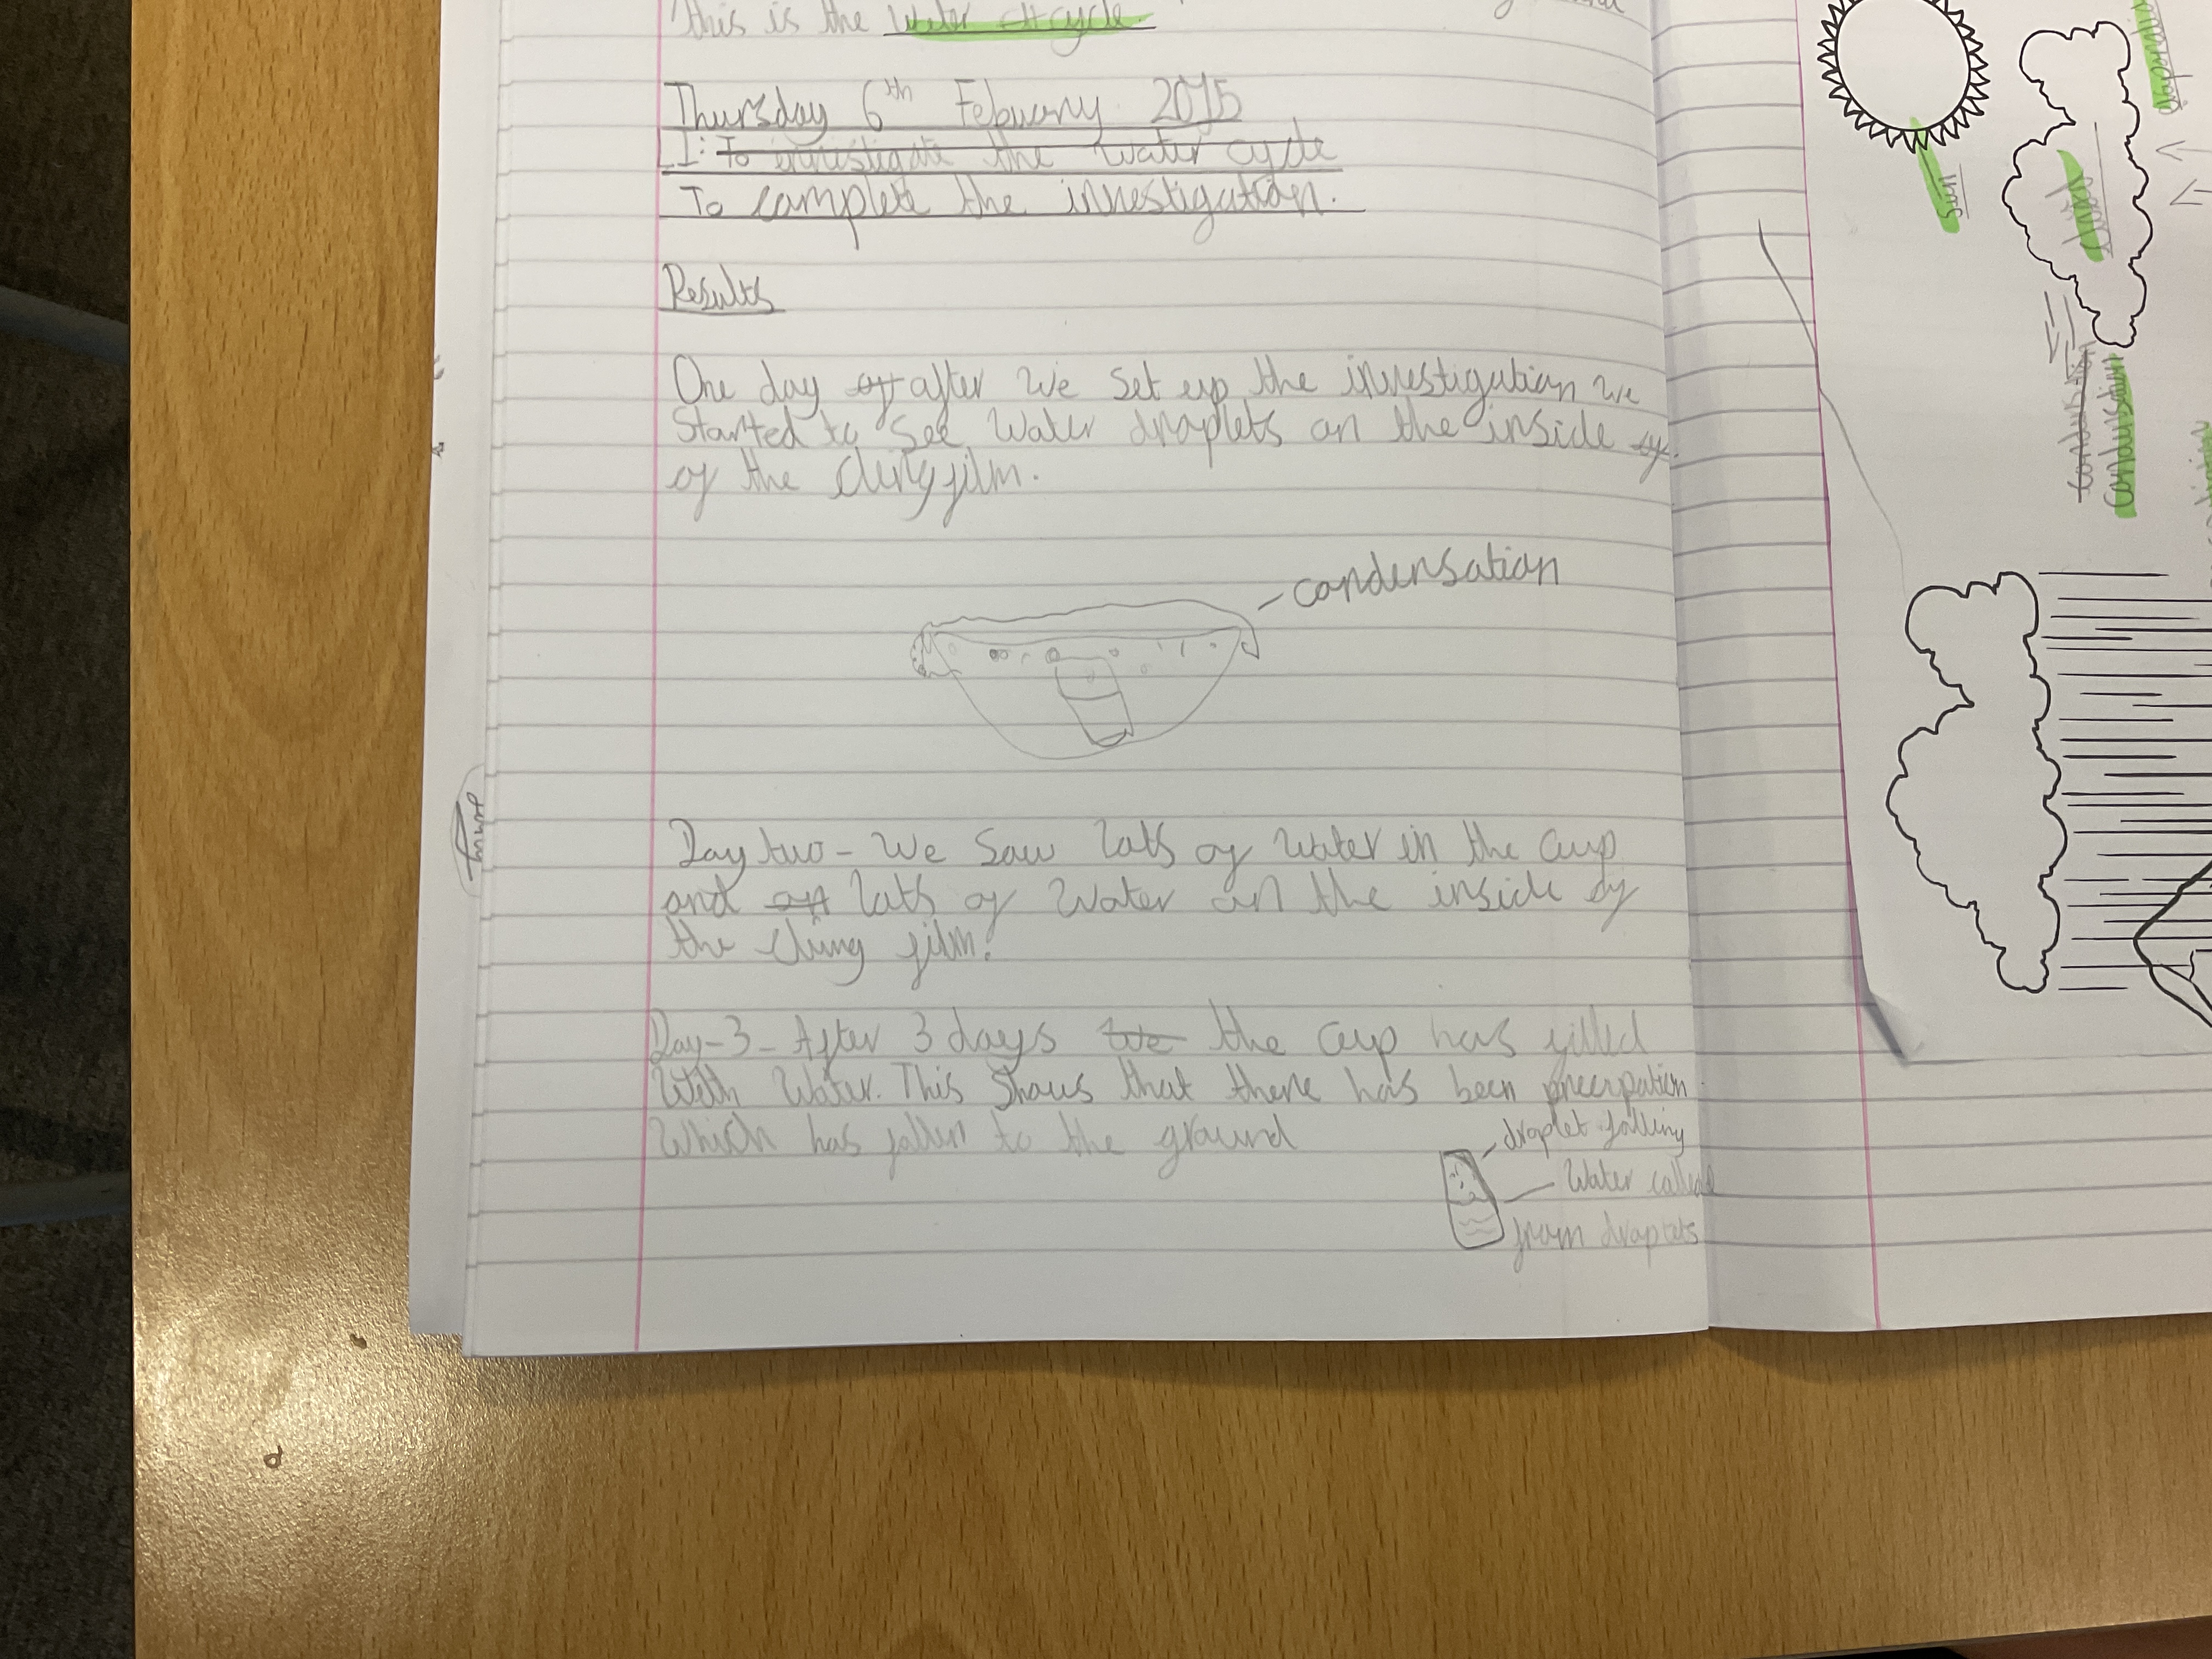 this is the water cycle.
Thursday 6th Febuary 2015
L I: To investigate the water cycle
To complete the investigation.
Results
One day aft after we set up the investigation we
started to see water droplets on the inside of
of the clingfilm.
condensation
Day two - We saw lots of water in the cup
and off lots of water on the inside of
the cling film.
Day-3- After 3 days we the cup has filled
with water. This shows that there has been precipation
which has fallen to the ground
droplet falling
water
from droplets
sun
condensation
condensation